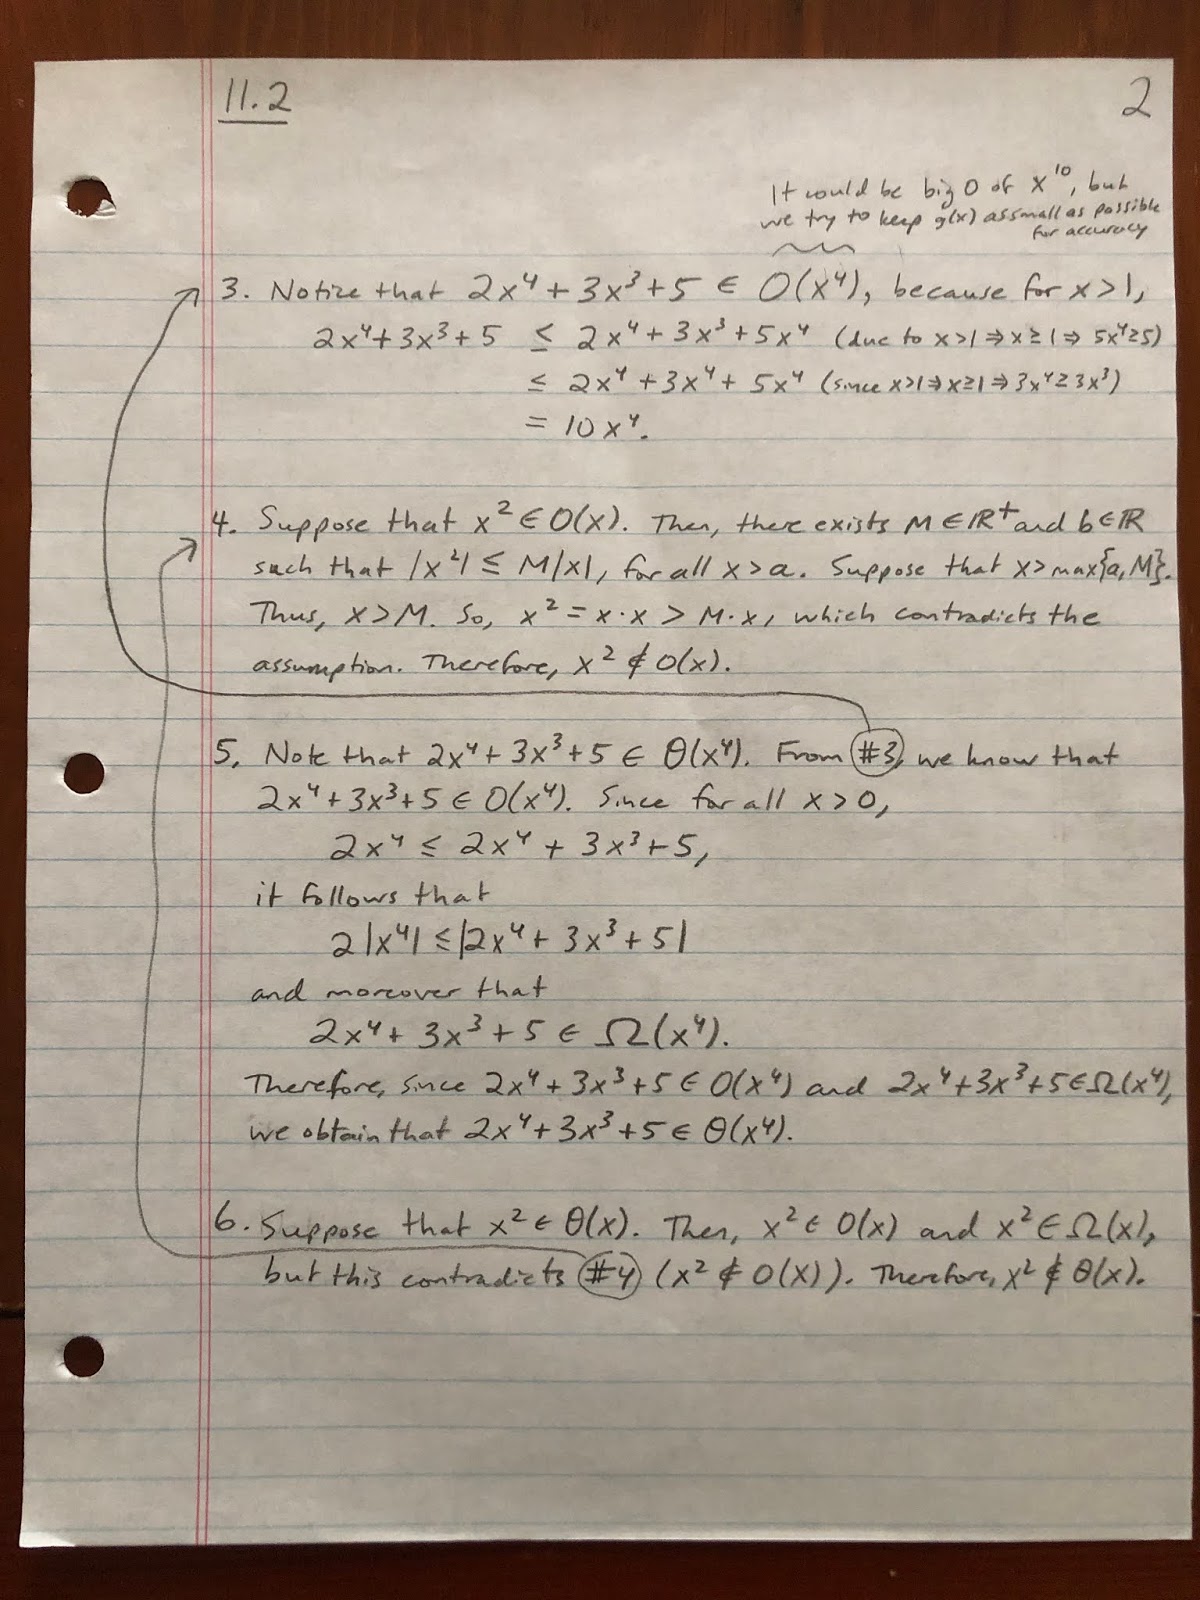 11.2
2
It would be big O of x¹⁰, but
we try to keep g(x) as small as possible
for accuracy
3. Notice that 2x⁴ + 3x³ + 5 ∈ O(x⁴), because for x > 1,
2x⁴ + 3x³ + 5 ≤ 2x⁴ + 3x³ + 5x⁴ (due to x>1 ⇒ x≥1 ⇒ 5x⁴≥5)
≤ 2x⁴ + 3x⁴ + 5x⁴ (since x>1 ⇒ x≥1 ⇒ 3x⁴≥3x³)
= 10x⁴.
4. Suppose that x² ∈ O(x). Then, there exists M ∈ ℝ⁺ and b ∈ ℝ
such that |x²| ≤ M|x|, for all x > a. Suppose that x > max{a, M}.
Thus, x > M. So, x² = x·x > M·x, which contradicts the
assumption. Therefore, x² ∉ O(x).
5. Note that 2x⁴ + 3x³ + 5 ∈ Θ(x⁴). From #3, we know that
2x⁴ + 3x³ + 5 ∈ O(x⁴). Since for all x > 0,
2x⁴ ≤ 2x⁴ + 3x³ + 5,
it follows that
2|x⁴| ≤ |2x⁴ + 3x³ + 5|
and moreover that
2x⁴ + 3x³ + 5 ∈ Ω(x⁴).
Therefore, since 2x⁴ + 3x³ + 5 ∈ O(x⁴) and 2x⁴ + 3x³ + 5 ∈ Ω(x⁴),
we obtain that 2x⁴ + 3x³ + 5 ∈ Θ(x⁴).
6. Suppose that x² ∈ Θ(x). Then, x² ∈ O(x) and x² ∈ Ω(x),
but this contradicts #4 (x² ∉ O(x)). Therefore, x² ∉ Θ(x).